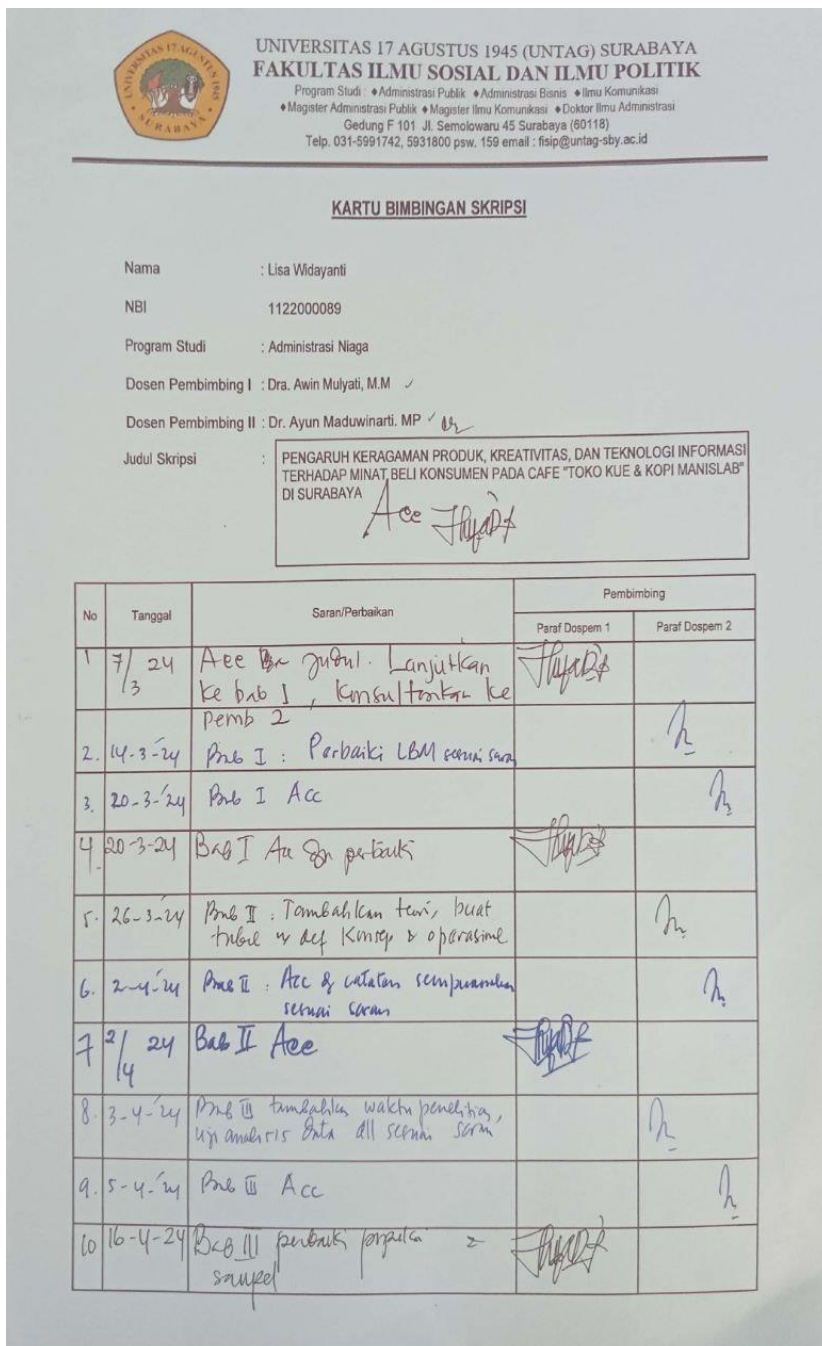 UNIVERSITAS 17 AGUSTUS 1945
SURABAYA
UNIVERSITAS 17 AGUSTUS 1945 (UNTAG) SURABAYA
FAKULTAS ILMU SOSIAL DAN ILMU POLITIK
Program Studi : ♦Administrasi Publik ♦Administrasi Bisnis ♦Ilmu Komunikasi
♦Magister Administrasi Publik ♦Magister Ilmu Komunikasi ♦Doktor Ilmu Administrasi
Gedung F 101 Jl. Semolowaru 45 Surabaya (60118)
Telp. 031-5991742, 5931800 psw. 159 email : fisip@untag-sby.ac.id
KARTU BIMBINGAN SKRIPSI
Nama : Lisa Widayanti
NBI 1122000089
Program Studi : Administrasi Niaga
Dosen Pembimbing I : Dra. Awin Mulyati, M.M
Dosen Pembimbing II : Dr. Ayun Maduwinarti. MP
Judul Skripsi : PENGARUH KERAGAMAN PRODUK, KREATIVITAS, DAN TEKNOLOGI INFORMASI
TERHADAP MINAT BELI KONSUMEN PADA CAFE "TOKO KUE & KOPI MANISLAB"
DI SURABAYA
Acc
No Tanggal Saran/Perbaikan Pembimbing
Paraf Dospem 1 Paraf Dospem 2
1 7/3 24 Acc judul. Lanjutkan
ke bab I, Konsultasikan ke
pemb 2
2. 14-3-'24 Bab I : Perbaiki LBM sesuai saran
3. 20-3-'24 Bab I Acc
4. 20-3-24 Bab I Acc dgn perbaiki
5. 26-3-24 Bab II : Tambahkan teori, buat
tabel def Konsep & operasional
6. 2-4-'24 Bab II : Acc catatan sempurnakan
sesuai saran
7 2/4 24 Bab II Acc
8. 3-4-'24 Bab III tambahkan waktu penelitian,
uji analisis data dll sesuai saran
9. 5-4-'24 Bab III Acc
10 16-4-24 Bab III perbaiki populasi
sampel